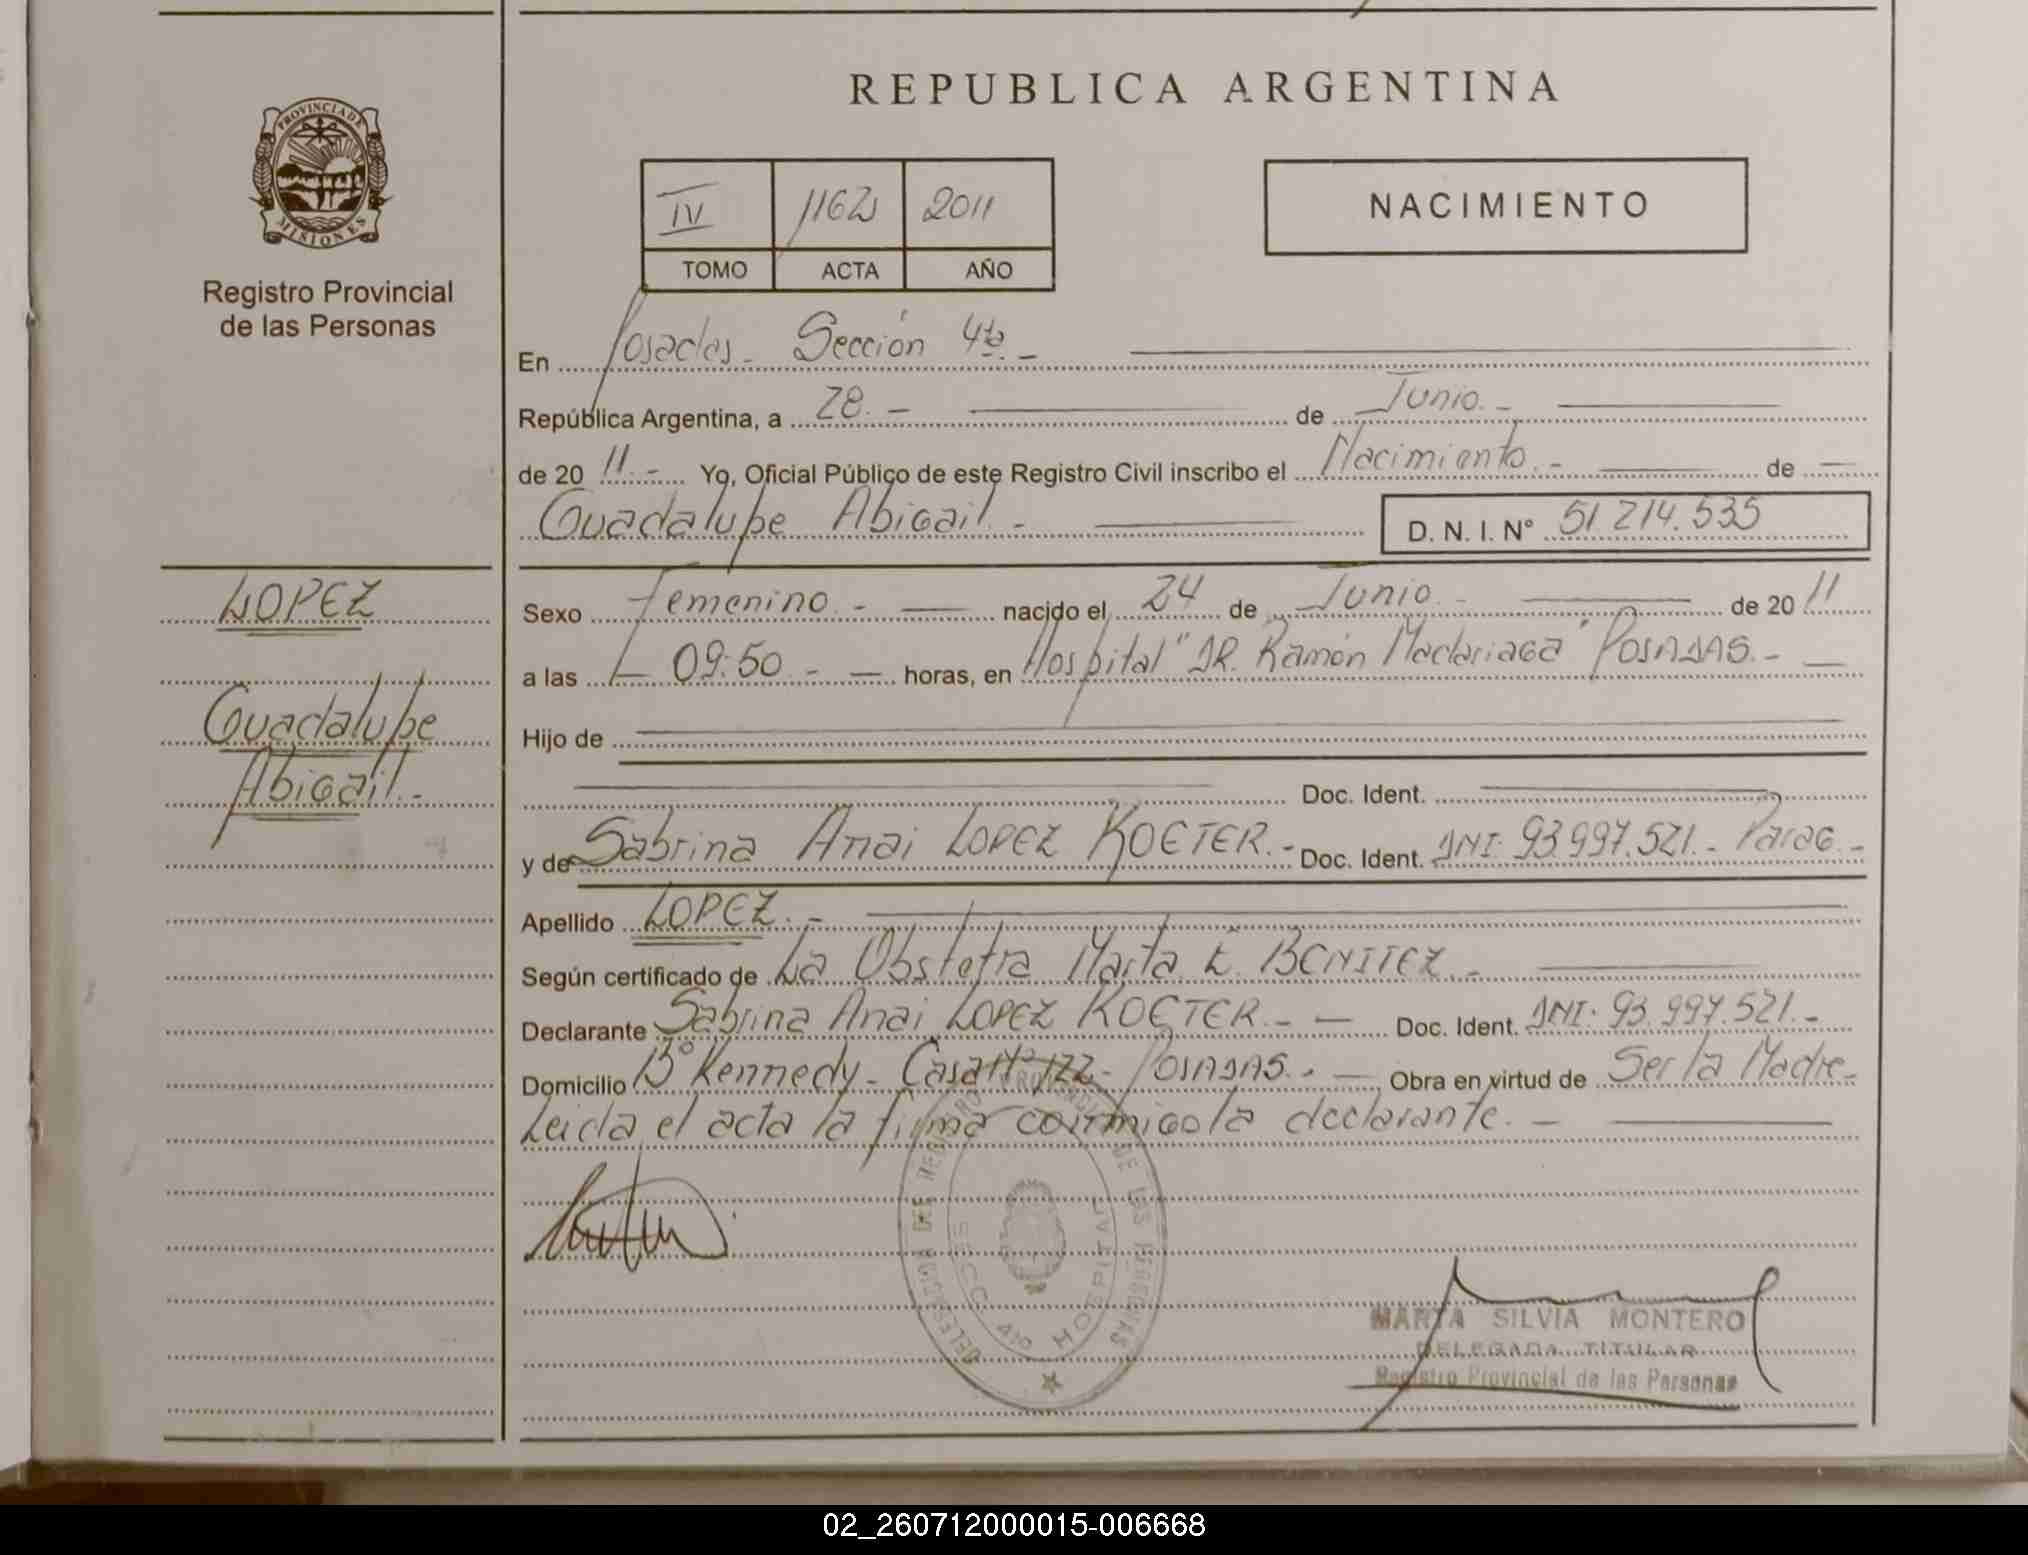 REPUBLICA ARGENTINA
PROVINCIA DE
MISIONES
Registro Provincial
de las Personas
IV 1162 2011
TOMO ACTA AÑO
NACIMIENTO
En Posadas - Sección 4ta. -
República Argentina, a 28. - de Junio. -
de 20 11. - Yo, Oficial Público de este Registro Civil inscribo el Nacimiento. - de —
Guadalupe Abigail. - D. N. I. N° 51.214.535
LOPEZ
Guadalupe
Abigail. -
Sexo Femenino. - nacido el 24 de Junio. - de 20 11
a las — 09:50. - — horas, en Hospital "DR. Ramón Madariaga" POSADAS. - —
Hijo de
Doc. Ident.
y de Sabrina Anai LOPEZ KOETER. - Doc. Ident. DNI: 93.997.521. - Parag. -
Apellido LOPEZ. -
Según certificado de La Obstetra Marta E. BENITEZ. -
Declarante Sabrina Anai LOPEZ KOETER. - — Doc. Ident. DNI: 93.997.521. -
Domicilio B° Kennedy - Casa N° 122 - POSADAS. - — Obra en virtud de Ser la Madre. -
Leida el acta la firma conmigo la declarante. -
DELEGACION DEL REGISTRO PROVINCIAL DE LAS PERSONAS
SECC. 4ta HOSPITAL
MARTA SILVIA MONTERO
DELEGADA TITULAR
Registro Provincial de las Personas
02_260712000015-006668